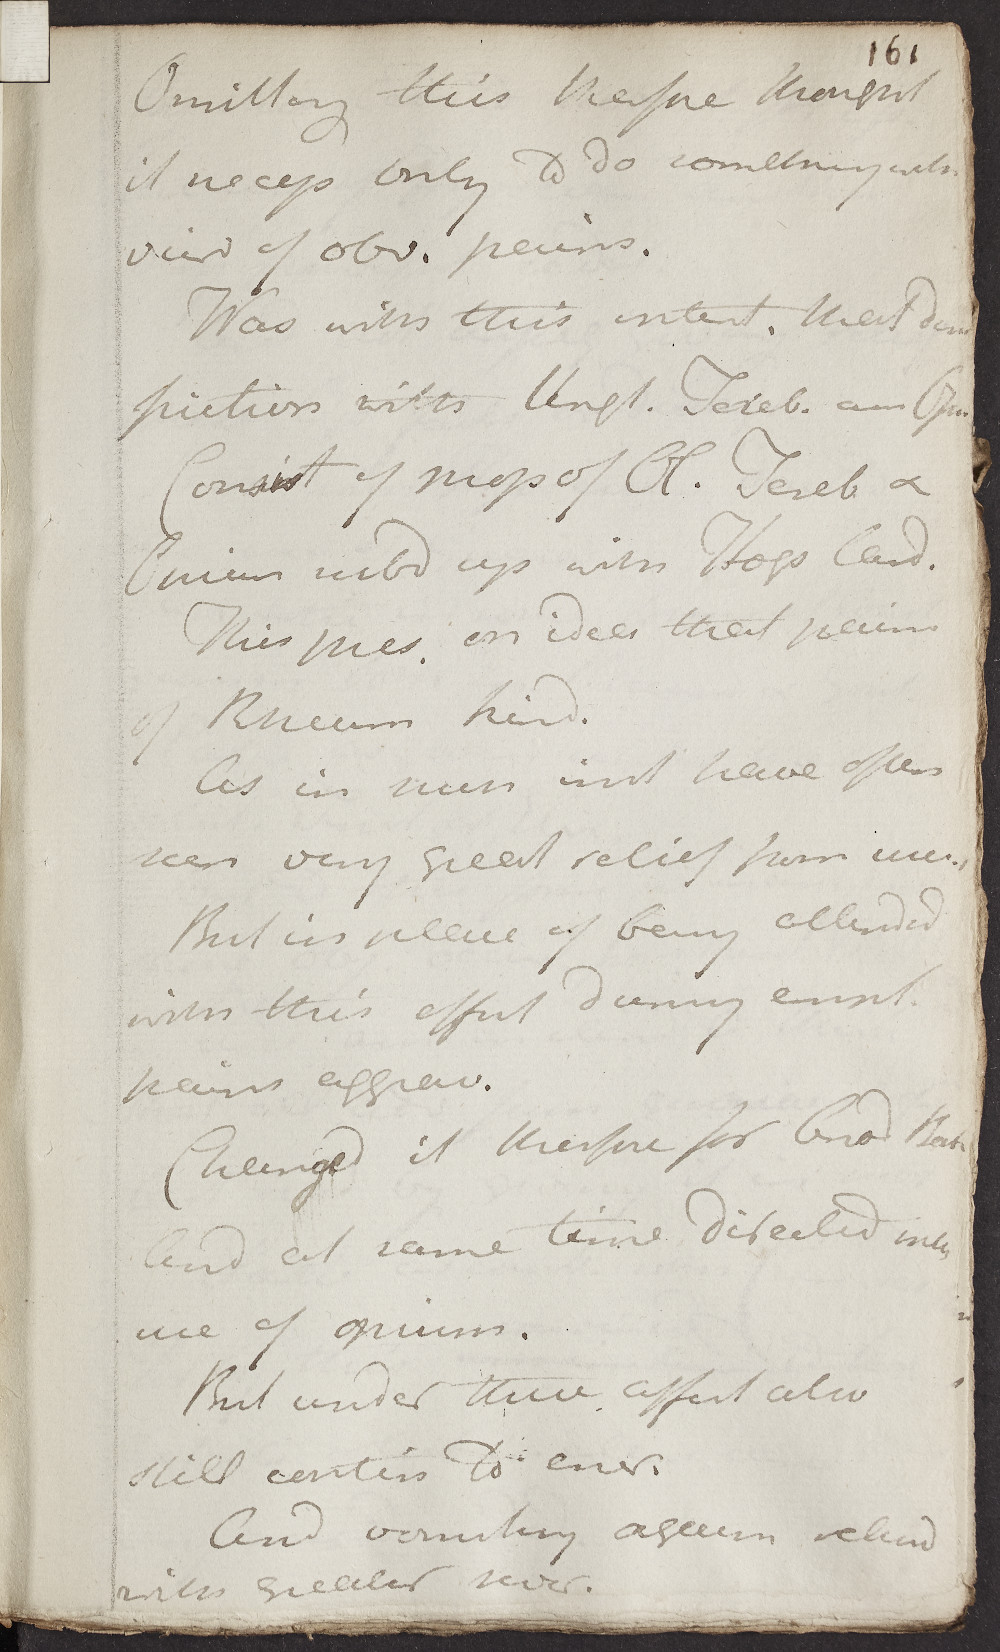 161
Omitting this therefore thought
it necess only to do something with
view of obv. pains.
Was with this intent. that
friction with Ungt. Tereb. cum
Consist of prep of Ol. Tereb &
Opium rubd up with Hogs Lard.
This pres. on idea that pains
of Rheum kind.
As in such inst have often
seen very great relief from use.
But in place of being attended
with this effect during empl.
pains aggrav.
Changed it therefore for
And at same time directed
use of opium.
But under these affect also
still contin to encr.
And vomiting again
with greater sever.